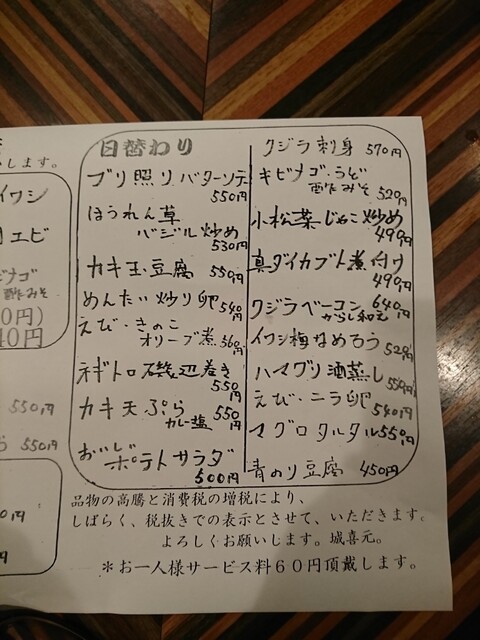 します。
イワシ
エビ
ビナゴ
酢みそ
0円)
40円
550円
550円
日替わり
ブリ照りバターソテ
550円
ほうれん草
バジル炒め
530円
カキ玉豆腐 550円
めんたい炒り卵 540円
えび・きのこ
オリーブ煮 560円
ネギトロ磯辺巻き
550円
カキ天ぷら 550円
カレー塩
おいし
ポテトサラダ
500円
クジラ刺身 570円
キビナゴ・うど
酢みそ 520円
小松菜じゃこ炒め
490円
真ダイカブト煮付け
490円
クジラベーコン 640円
からし和え
イワシ梅なめろう 520円
ハマグリ酒蒸し 550円
えび・ニラ卵
540円
マグロタルタル 550円
青のり豆腐 450円
品物の高騰と消費税の増税により、
しばらく、税抜きでの表示とさせて、いただきます。
よろしくお願いします。城喜元。
＊お一人様サービス料６０円頂戴します。